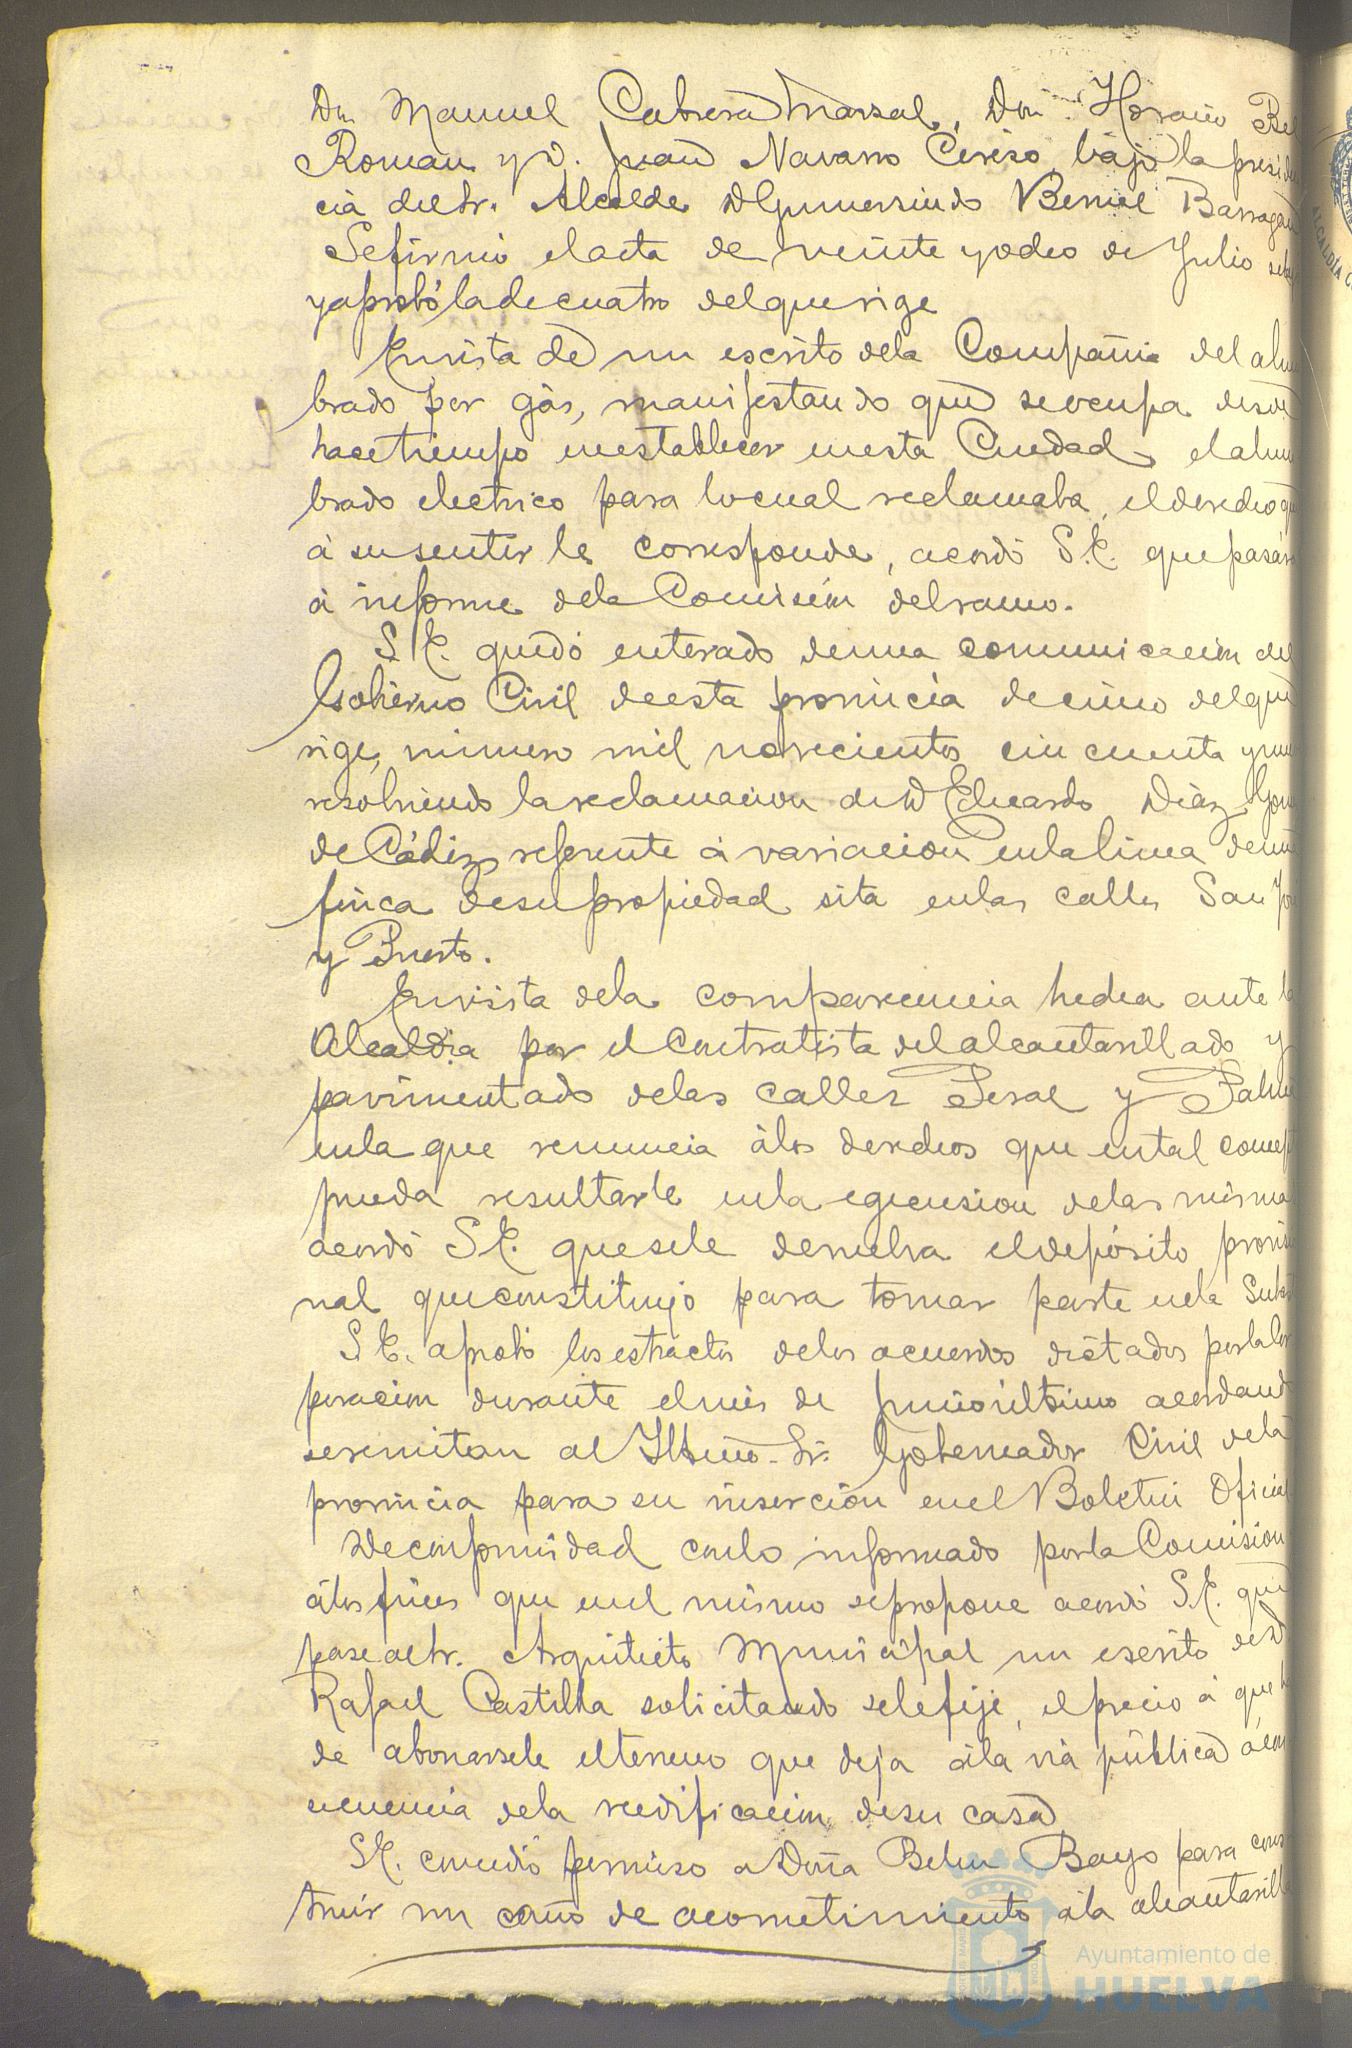 Dn. Manuel Cabrera Marsal, Don Horacio Bel
Roman y D. Juan Navarro Cerezo, bajo la presiden
cia del Sr. Alcalde D Gumersindo Bernel Barragan
Se firmó el acta de veinte y ocho de Julio
y aprobó la de cuatro del que rige
En vista de un escrito de la Compañia del alum
brado por gas, manifestando que se ocupa desde
hace tiempo en establecer en esta Ciudad, el alum
brado electrico para lo cual reclamaba, el derecho que
á su sentir le corresponde, acordó S.E. que pasára
á informe de la Comisión del ramo.
S.E. quedó enterado de una comunicación del
Gobierno Civil de esta provincia de cinco del que
rige, número mil novecientos cincuenta y un
resolviendo la reclamacion de D Eduardo Diaz Gom
de Cádiz, referente á variacion en la linea de una
finca de su propiedad sita en las calles San Jo
y Puerto.
En vista de la comparecencia hecha ante la
Alcaldia por el contratista del alcantarillado y
pavimentado de las calles Peral y Palm
en la que renuncia á los derechos que en tal concept
pueda resultarle en la egecusion de las misma
acordó S.E. que se le devuelva el depósito provisio
nal que constituyó para tomar parte en la Subast
S.E. aprobó los estractos de los acuerdos dictados por la Cor
poración durante el mes de Junio último acordando
se remitan al Iltmo. Sr. Gobernador Civil de la
provincia para su inserción en el Boletin Oficial
De conformidad con lo informado por la Comision
á los fines que en el mismo se propone acordó S.E. que
pase al Sr. Arquitecto Municipal un escrito de D
Rafael Castilla solicitando se le fije, el precio á que ha
de abonarsele el terreno que deja á la via pública á con
cuencia de la reedificación de su casa
S.E. concedió permiso a Doña Belen Bayo para cons
truir un caño de acometimiento á la alcantarilla
ALCALDIA
Ayuntamiento de
HUELVA